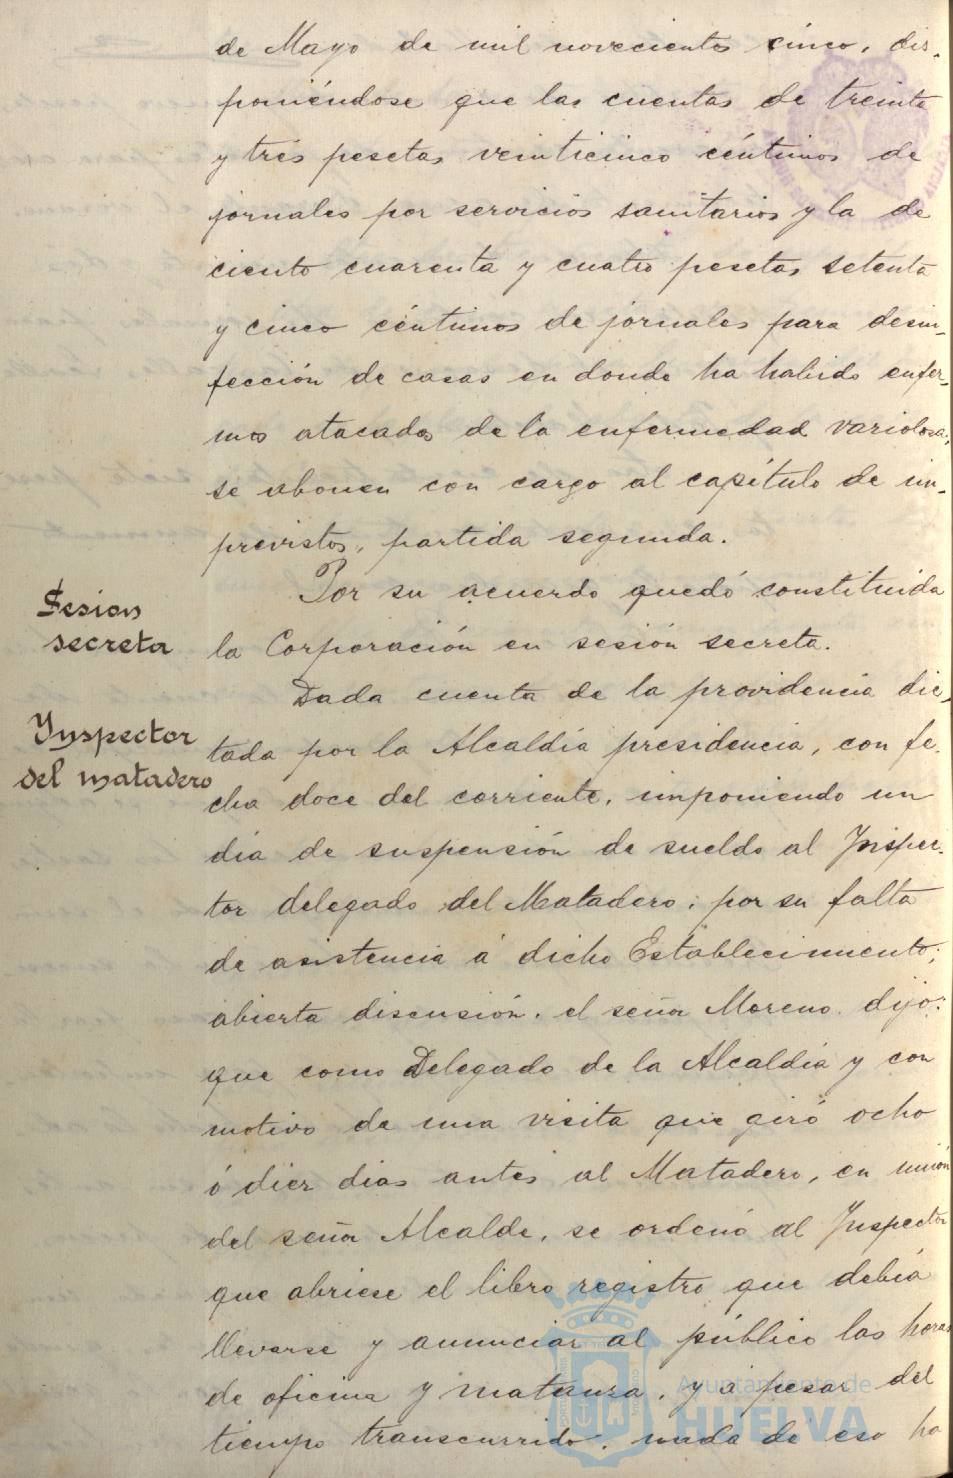 de Mayo de mil novecientos cinco, dis-
poniéndose que las cuentas de treinta
y tres pesetas veinticinco céntimos de
jornales por servicios sanitarios y la de
ciento cuarenta y cuatro pesetas setenta
y cinco céntimos de jornales para desin-
fección de casas en donde ha habido enfer-
mos atacados de la enfermedad variolosa,
se abonen con cargo al capítulo de im-
previstos, partida segunda.
Por su acuerdo quedó constituida
Sesion
secreta
la Corporación en sesión secreta.
Dada cuenta de la providencia dic-
Inspector
del matadero
tada por la Alcaldía presidencia, con fe-
cha doce del corriente, imponiendo un
dia de suspensión de sueldo al Inspec-
tor delegado del Matadero, por su falta
de asistencia á dicho Establecimiento;
abierta discusión, el señor Moreno dijo:
que como Delegado de la Alcaldía y con
motivo de una visita que giró ocho
ó diez dias antes al Matadero, en unión
del señor Alcalde, se ordenó al Inspector
que abriese el libro registro que debía
llevarse y anunciar al público las horas
de oficina y matanza, y á pesar del
tiempo transcurrido, nada de eso ha
Ayuntamiento de
HUELVA